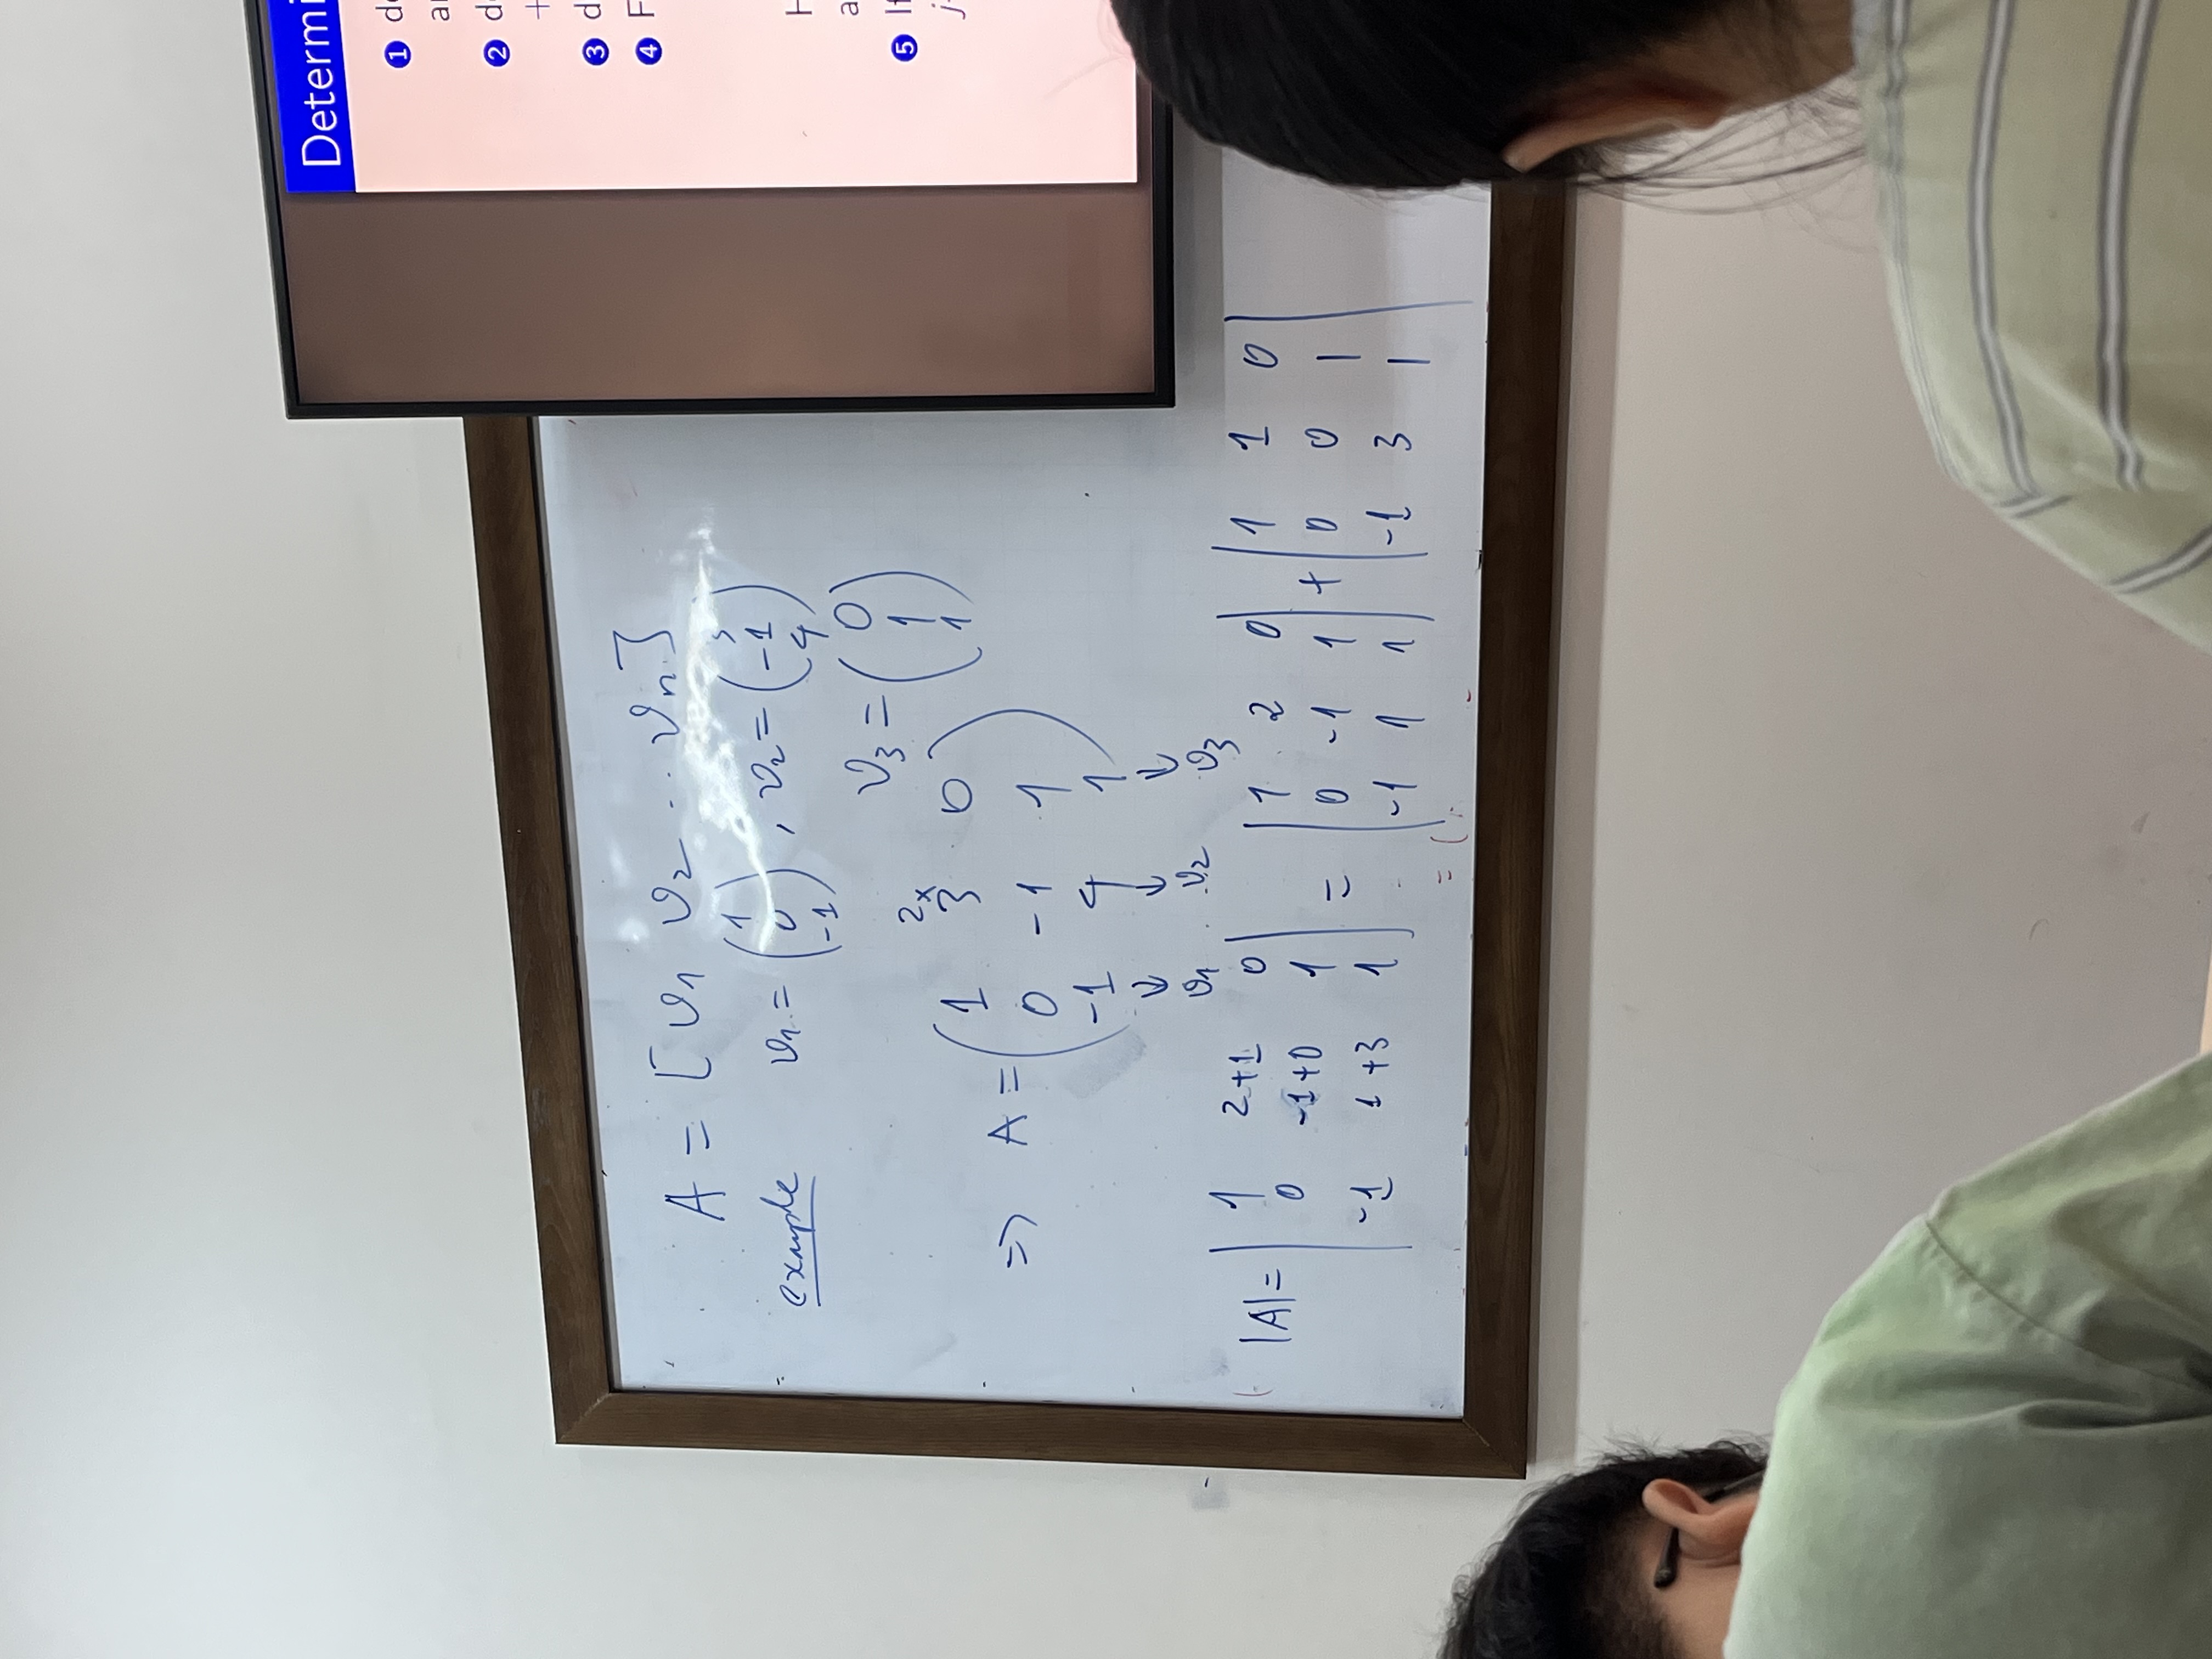 A = [v₁ v₂ ... vₙ]
example v₁ = (1 0 -1), v₂ = (3 -1 4)
v₃ = (0 1 1)
2x
=> A = (1 3 0
0 -1 1
-1 4 1)
↓ ↓ ↓
v₁ v₂ v₃
|A| = |1 2+1 0| = |1 2 0| + |1 1 0|
|0 -1+0 1| |0 -1 1| |0 0 1|
|-1 1+3 1| |-1 1 1| |-1 3 1|
= (
Determi
1 d
a
2 d
+
3 d
4 F
H
a
5 If
j-